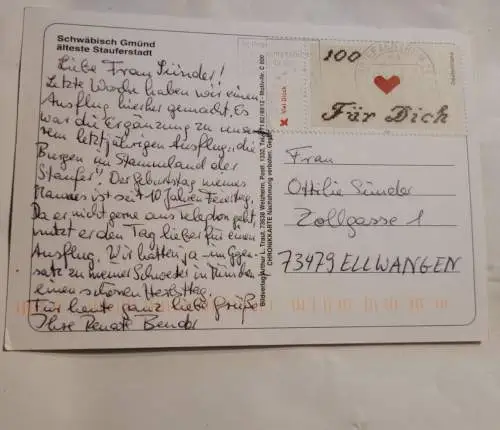 Schwäbisch Gmünd
älteste Stauferstadt
Liebe Frau Sünder!
Letzte Woche haben wir einen
Ausflug hierher gemacht. Es
war die Ergänzung zu unse-
rem letztjährigen Ausflug "die
Burgen im Stammland der
Staufer". Der Geburtstag meines
Mannes ist seit 10 Jahren Feiertag.
Da er nicht gerne aus geht,
nutzt er den Tag lieber für einen
Ausflug. Wir hatten ja im Gegen-
satz zu meiner Schwester in
einen schönen Herbsttag.
Für heute ganz liebe Grüße
Ihre Renate Bender
Bildverlag Arthur L. Traut, 73638 Welzheim, Postf. 1330, Motiv-Nr. C 600
CHRONIKKARTE Nachahmung verboten. Ges.
Viel Glück
100
Für Dich
Deutschland
Frau
Ottilie Sünder
Zollgasse 1
73479 ELLWANGEN